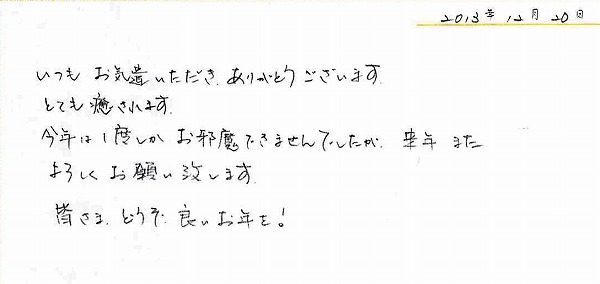 2013年 12月 20日
いつも お気遣いただき、ありがとうございます。
とても癒されます。
今年は1度しか お邪魔できませんでしたが、来年 また
よろしく お願い致します。
皆さま、どうぞ 良いお年を!